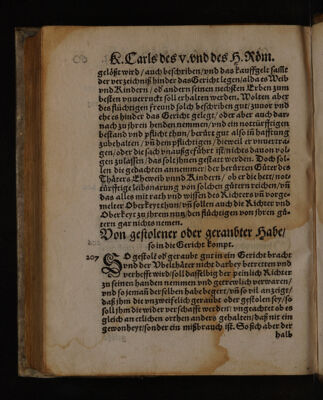 K. Carls des v. vnd des H. Röm.
gelößt wird / auch beschriben / vnd das kauffgelt sampt
der verzeichniß hinder das Gericht legen / alda es Weib
vnd Kindern / od andern seinen nechsten Erben zum
besten vnuerruckt soll erhalten werden. Wolten aber
des flüchtigen freund solch beschriben gut / zuuor vnd
ehe es hinder das Gericht gelegt / oder aber auch dar-
nach zu jren henden nemmen / vnd ein notürfftigen
bestand vnd pflicht thun / berürt gut also in hafftung
zubehalten / vñ den pflichtigen / dieweil er vnuertra-
gen / oder die sach vnaußgeführt ist / nichts dauon vol-
gen zulassen / das sol jhnen gestatt werden. Doch sol-
len die gedachten annemmer / der berürten Güter des
Thäters Eheweib vnnd Kindern / ob er die hett / not-
türfftige leibsnarung von solchen gütern reichen / vñ
das alles mit rath vnd wissen des Richters vñ vorge-
melter Oberkeyt thun / vñ sollen auch die Richter vnd
Oberkeyt zu jhrem nutz / den flüchtigen von jhren gü-
tern gar nichts nemen.
Von gestolener oder geraubter Habe /
so in die Gericht kompt.
207 SO gestolē od geraubt gut in ein Gericht bracht
vnd der Vbelthäter nicht darbey betretten vnd
verhefft wird / soll dasselbig der peinlich Richter
zu seinen handen nemmen vnd getrewlich verwaren /
vnd so jemañ derselben habe begert / vñ so vil anzeigt /
daß jhm die vnzweifelich geraubt oder gestolen sey / so
soll jhm die wider verschafft werden / vngeachtet ob es
gleich an etlichen orthen anders gehalten / daß nit ein
gewonheyt / sonder ein mißbrauch ist. So sich aber der
halb